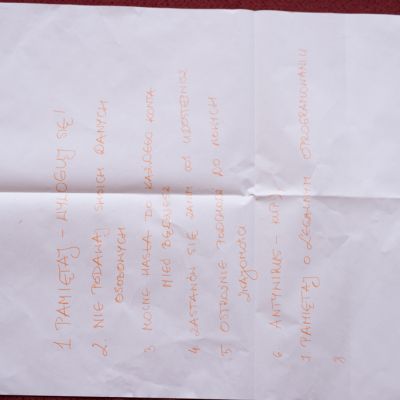 1. PAMIĘTAJ - WYLOGUJ SIĘ!
2. NIE PODAWAJ SWOICH DANYCH
OSOBOWYCH
3. MOCNE HASŁA DO KAŻDEGO KONTA
MIEĆ BĘDZIESZ
4. ZASTANÓW SIĘ ZANIM COŚ UDOSTĘPNISZ
5. OSTROŻNIE PODCHODŹ DO NOWYCH
ZNAJOMOŚCI
6. ANTYWIRUS - KUP
7. PAMIĘTAJ O LEGALNYM OPROGRAMOWANIU
8